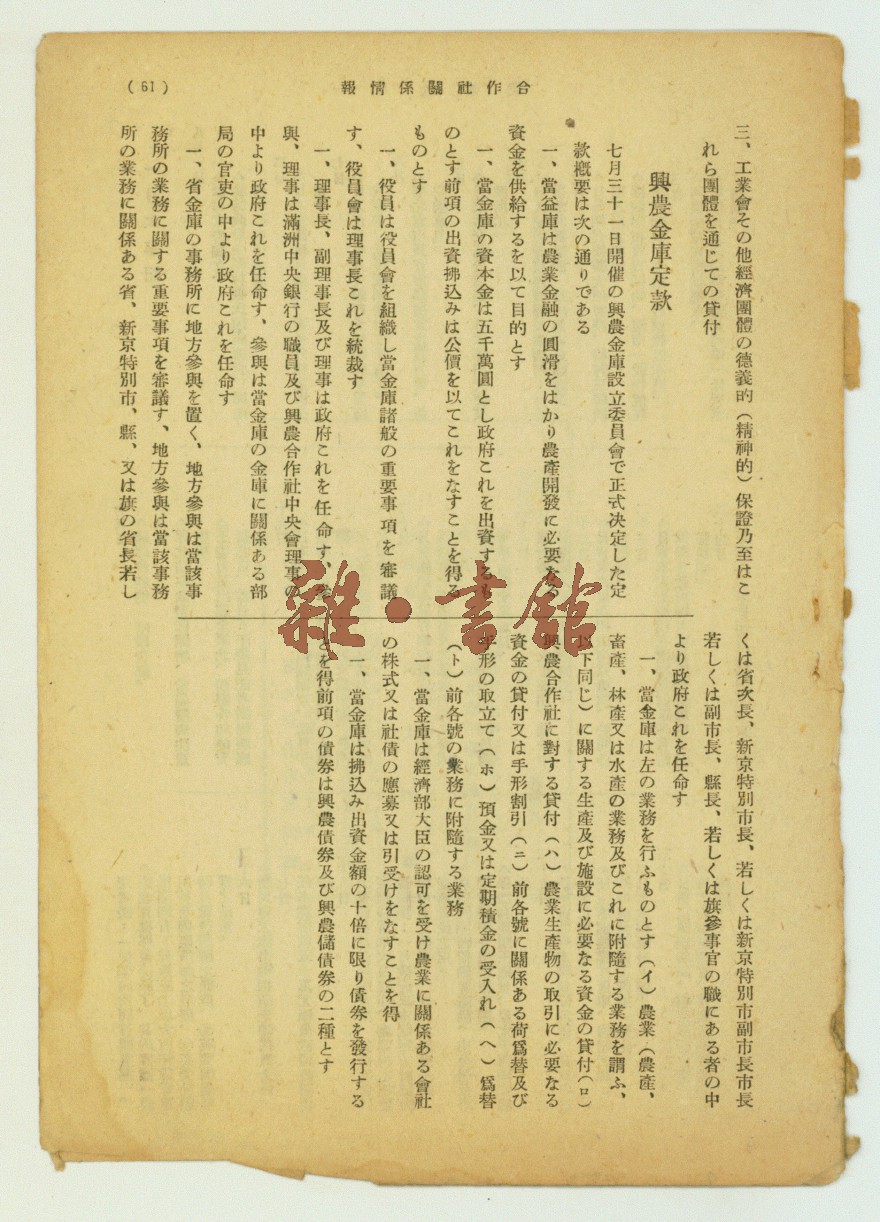 (61)
報情係關社作合
三、工業會その他經濟團體の德義的(精神的)保證乃至はこ
れら團體を通じての貸付
興農金庫定款
七月三十一日開催の興農金庫設立委員會で正式決定した定
款概要は次の通りである
一、當金庫は農業金融の圓滑をはかり農產開發に必要なる
資金を供給するを以て目的とす
一、當金庫の資本金は五千萬圓とし政府これを出資するも
のとす前項の出資拂込みは公價を以てこれをなすことを得る
ものとす
一、役員は役員會を組織し當金庫諸般の重要事項を審議
す、役員會は理事長これを統裁す
一、理事長、副理事長及び理事は政府これを任命す、參
與、理事は滿洲中央銀行の職員及び興農合作社中央會理事の
中より政府これを任命す、參與は當金庫の金庫に關係ある部
局の官吏の中より政府これを任命す
一、省金庫の事務所に地方參與を置く、地方參與は當該事
務所の業務に關する重要事項を審議す、地方參與は當該事務
所の業務に關係ある省、新京特別市、縣、又は旗の省長若し
くは省次長、新京特別市長、若しくは新京特別市副市長市長
若しくは副市長、縣長、若しくは旗參事官の職にある者の中
より政府これを任命す
一、當金庫は左の業務を行ふものとす(イ)農業(農產、
畜產、林產又は水產の業務及びこれに附隨する業務を謂ふ、
以下同じ)に關する生產及び施設に必要なる資金の貸付(ロ)
興農合作社に對する貸付(ハ)農業生產物の取引に必要なる
資金の貸付又は手形割引(ニ)前各號に關係ある荷爲替及び
手形の取立て(ホ)預金又は定期積金の受入れ(ヘ)爲替
(ト)前各號の業務に附隨する業務
一、當金庫は經濟部大臣の認可を受け農業に關係ある會社
の株式又は社債の應募又は引受けをなすことを得
一、當金庫は拂込み出資金額の十倍に限り債券を發行する
ことを得前項の債券は興農債券及び興農儲債券の二種とす
雜·書館